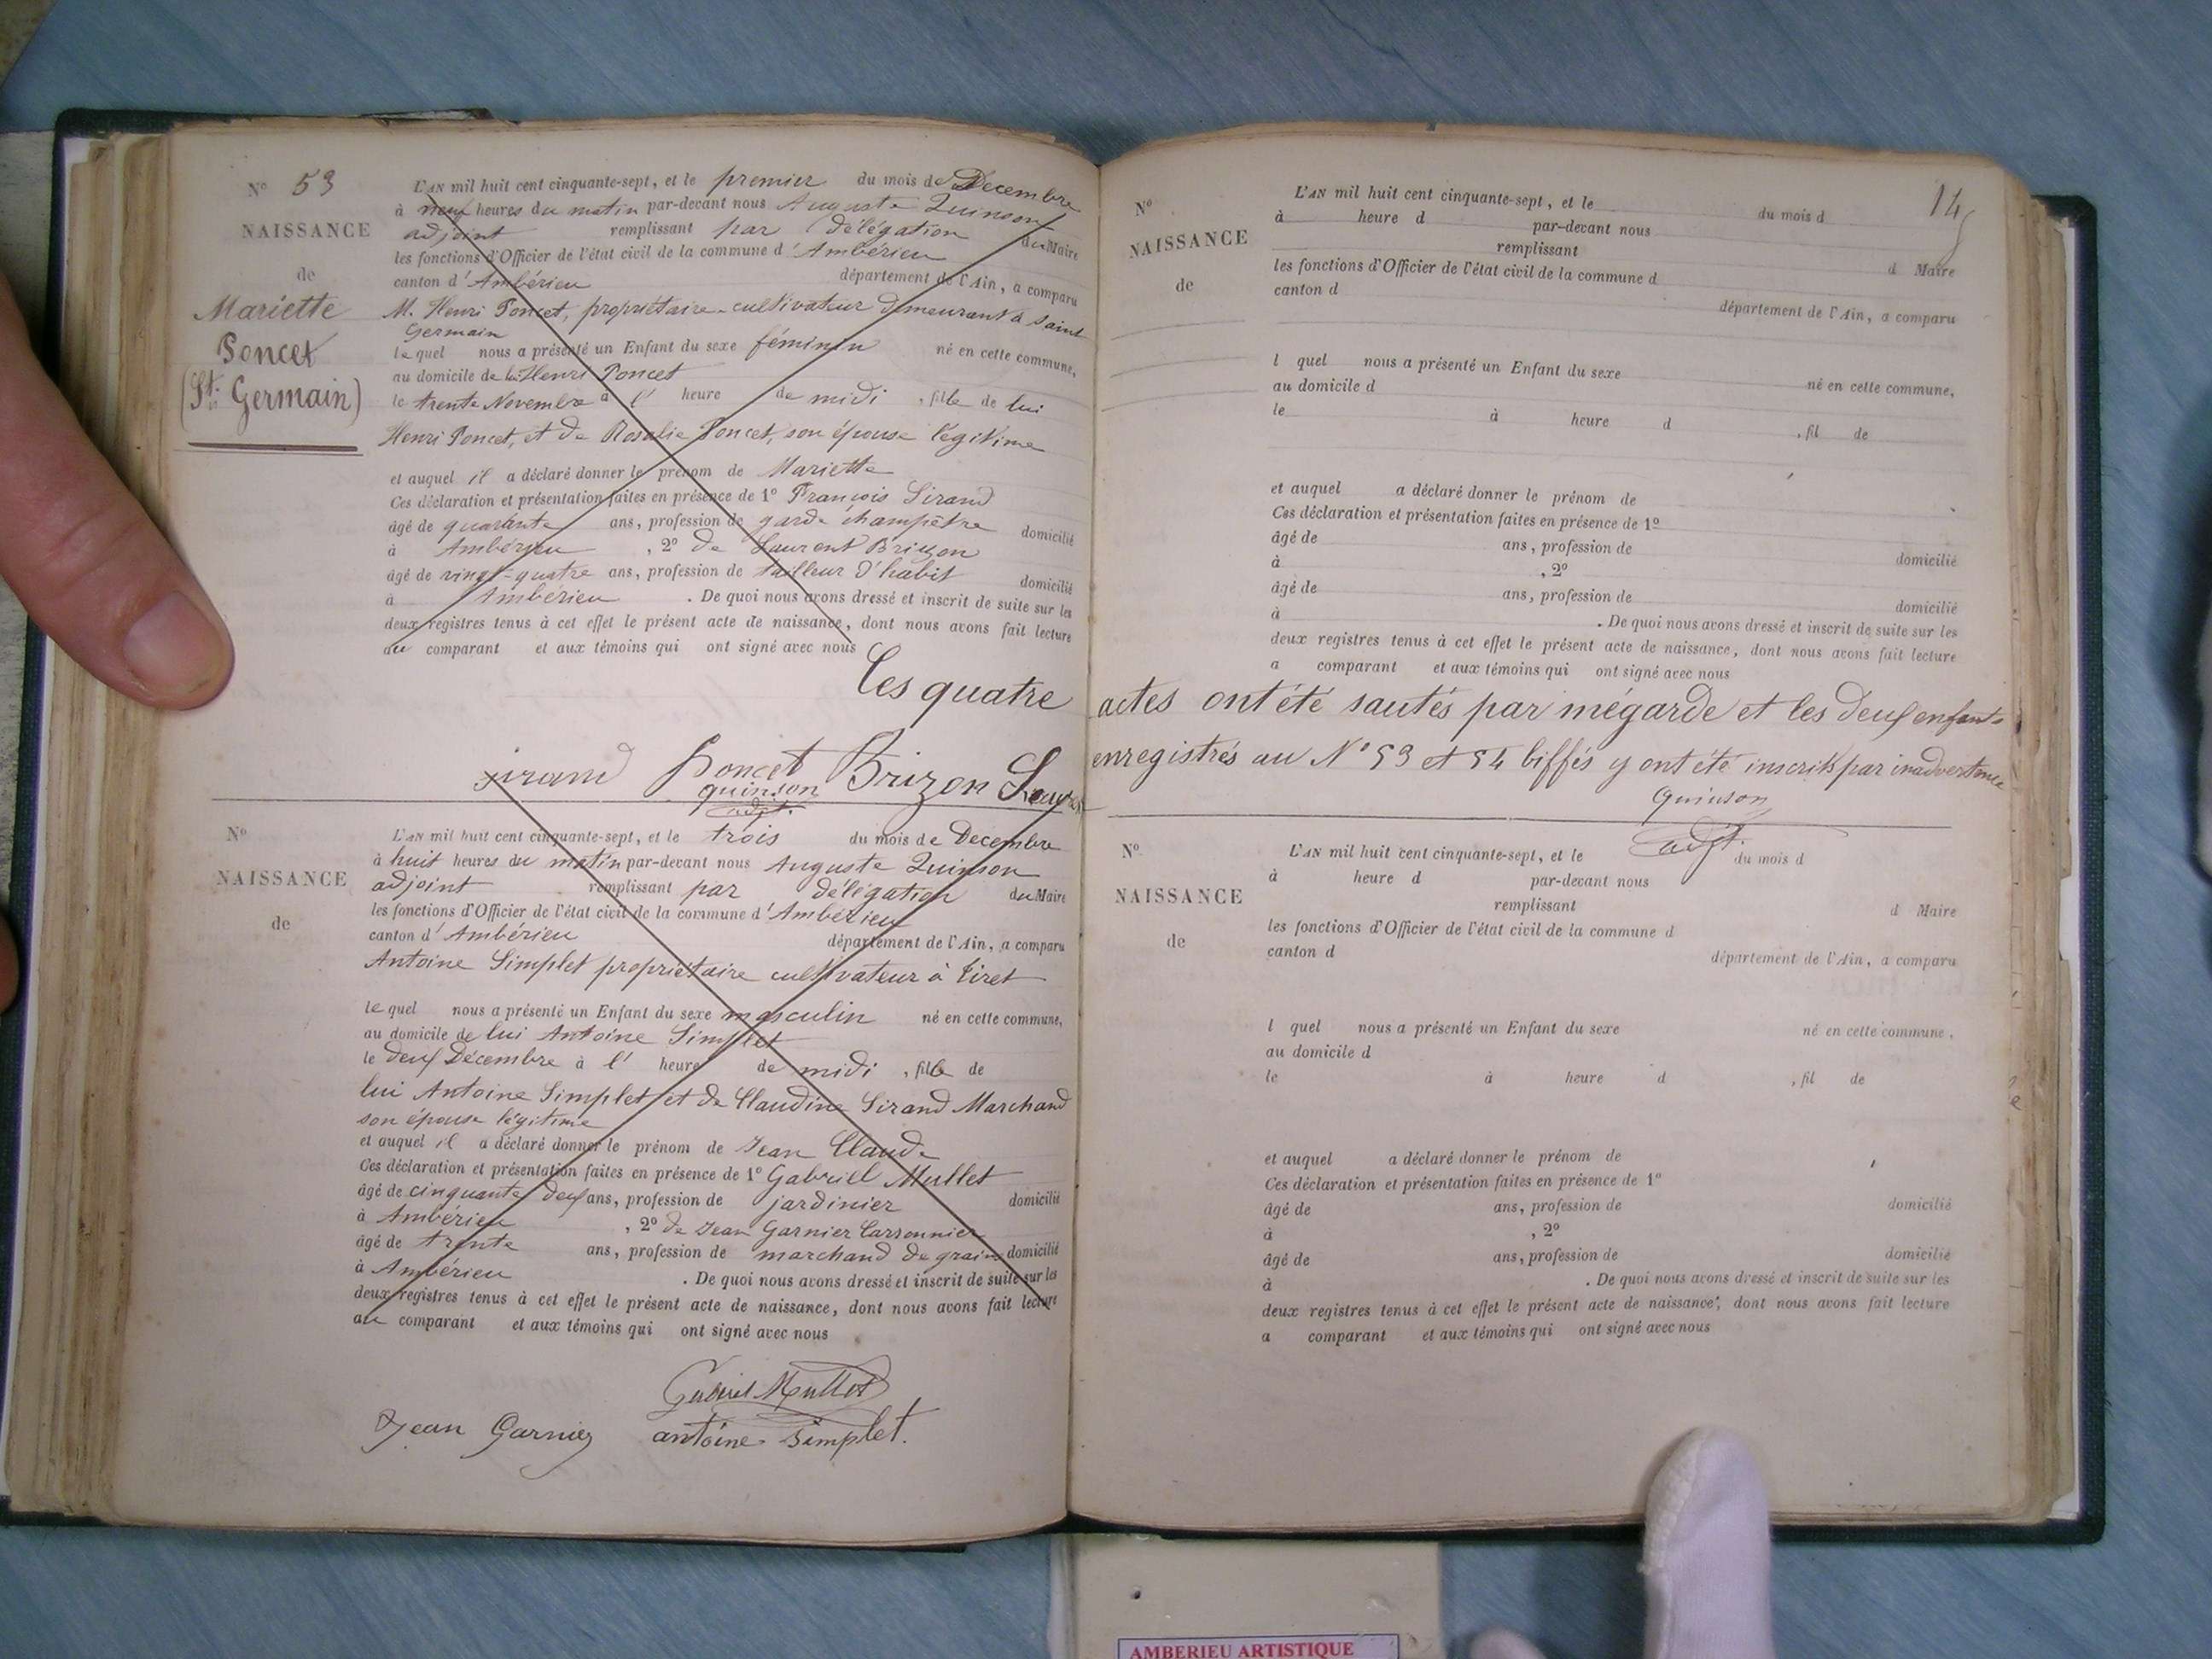 N° 53
NAISSANCE
de
Mariette
Poncet
(St. Germain)
L'AN mil huit cent cinquante-sept, et le premier du mois de Decembre
à neuf heures du matin par-devant nous Auguste Quinson
adjoint remplissant par délégation du Maire
les fonctions d'Officier de l'état civil de la commune d'Ambérieu
canton d'Ambérieu département de l'Ain, a comparu
M. Henri Poncet, propriétaire-cultivateur demeurant à Saint
Germain
lequel nous a présenté un Enfant du sexe féminin né en cette commune,
au domicile de lui Henri Poncet
le trente Novembre à l' heure de midi, fille de lui
Henri Poncet, et de Rosalie Poncet, son épouse légitime
et auquel il a déclaré donner le prénom de Mariette
Ces déclaration et présentation faites en présence de 1° François Sirand
âgé de quarante ans, profession de garde champêtre domicilié
à Ambérieu, 2° de Laurent Brizon
âgé de vingt-quatre ans, profession de tailleur d'habit domicilié
à Ambérieu. De quoi nous avons dressé et inscrit de suite sur les
deux registres tenus à cet effet le présent acte de naissance, dont nous avons fait lecture
au comparant et aux témoins qui ont signé avec nous
Sirand Poncet Brizon
quinson
adjt.
N°
NAISSANCE
de
L'AN mil huit cent cinquante-sept, et le trois du mois de Decembre
à huit heures du matin par-devant nous Auguste Quinson
adjoint remplissant par délégation du Maire
les fonctions d'Officier de l'état civil de la commune d'Ambérieu
canton d'Ambérieu département de l'Ain, a comparu
Antoine Simplet propriétaire cultivateur à Tiret
lequel nous a présenté un Enfant du sexe masculin né en cette commune,
au domicile de lui Antoine Simplet
le deux Décembre à l' heure de midi, fille de
lui Antoine Simplet et de Claudine Sirand Marchand
son épouse légitime
et auquel il a déclaré donner le prénom de Jean Claude
Ces déclaration et présentation faites en présence de 1° Gabriel Mullet
âgé de cinquante deux ans, profession de jardinier domicilié
à Ambérieu, 2° de Jean Garnier Carronnier
âgé de trente ans, profession de marchand de grains domicilié
à Ambérieu. De quoi nous avons dressé et inscrit de suite sur les
deux registres tenus à cet effet le présent acte de naissance, dont nous avons fait lecture
au comparant et aux témoins qui ont signé avec nous
Gabriel Mullet
Jean Garnier antoine Simplet.
14
N°
NAISSANCE
de
L'AN mil huit cent cinquante-sept, et le du mois d
à heure d par-devant nous
remplissant d Maire
les fonctions d'Officier de l'état civil de la commune d
canton d département de l'Ain, a comparu
l quel nous a présenté un Enfant du sexe né en cette commune,
au domicile d
le à heure d , fil de
et auquel a déclaré donner le prénom de
Ces déclaration et présentation faites en présence de 1°
âgé de ans, profession de domicilié
à , 2°
âgé de ans, profession de domicilié
à . De quoi nous avons dressé et inscrit de suite sur les
deux registres tenus à cet effet le présent acte de naissance, dont nous avons fait lecture
a comparant et aux témoins qui ont signé avec nous
Les quatre actes ont été sautés par mégarde et les deux enfants
enregistrés au N° 53 et 54 biffés y ont été inscrits par inadvertance
Quinson
adjt.
N°
NAISSANCE
de
L'AN mil huit cent cinquante-sept, et le du mois d
à heure d par-devant nous
remplissant d Maire
les fonctions d'Officier de l'état civil de la commune d
canton d département de l'Ain, a comparu
l quel nous a présenté un Enfant du sexe né en cette commune,
au domicile d
le à heure d , fil de
et auquel a déclaré donner le prénom de
Ces déclaration et présentation faites en présence de 1°
âgé de ans, profession de domicilié
à , 2°
âgé de ans, profession de domicilié
à . De quoi nous avons dressé et inscrit de suite sur les
deux registres tenus à cet effet le présent acte de naissance, dont nous avons fait lecture
a comparant et aux témoins qui ont signé avec nous
AMBERIEU ARTISTIQUE